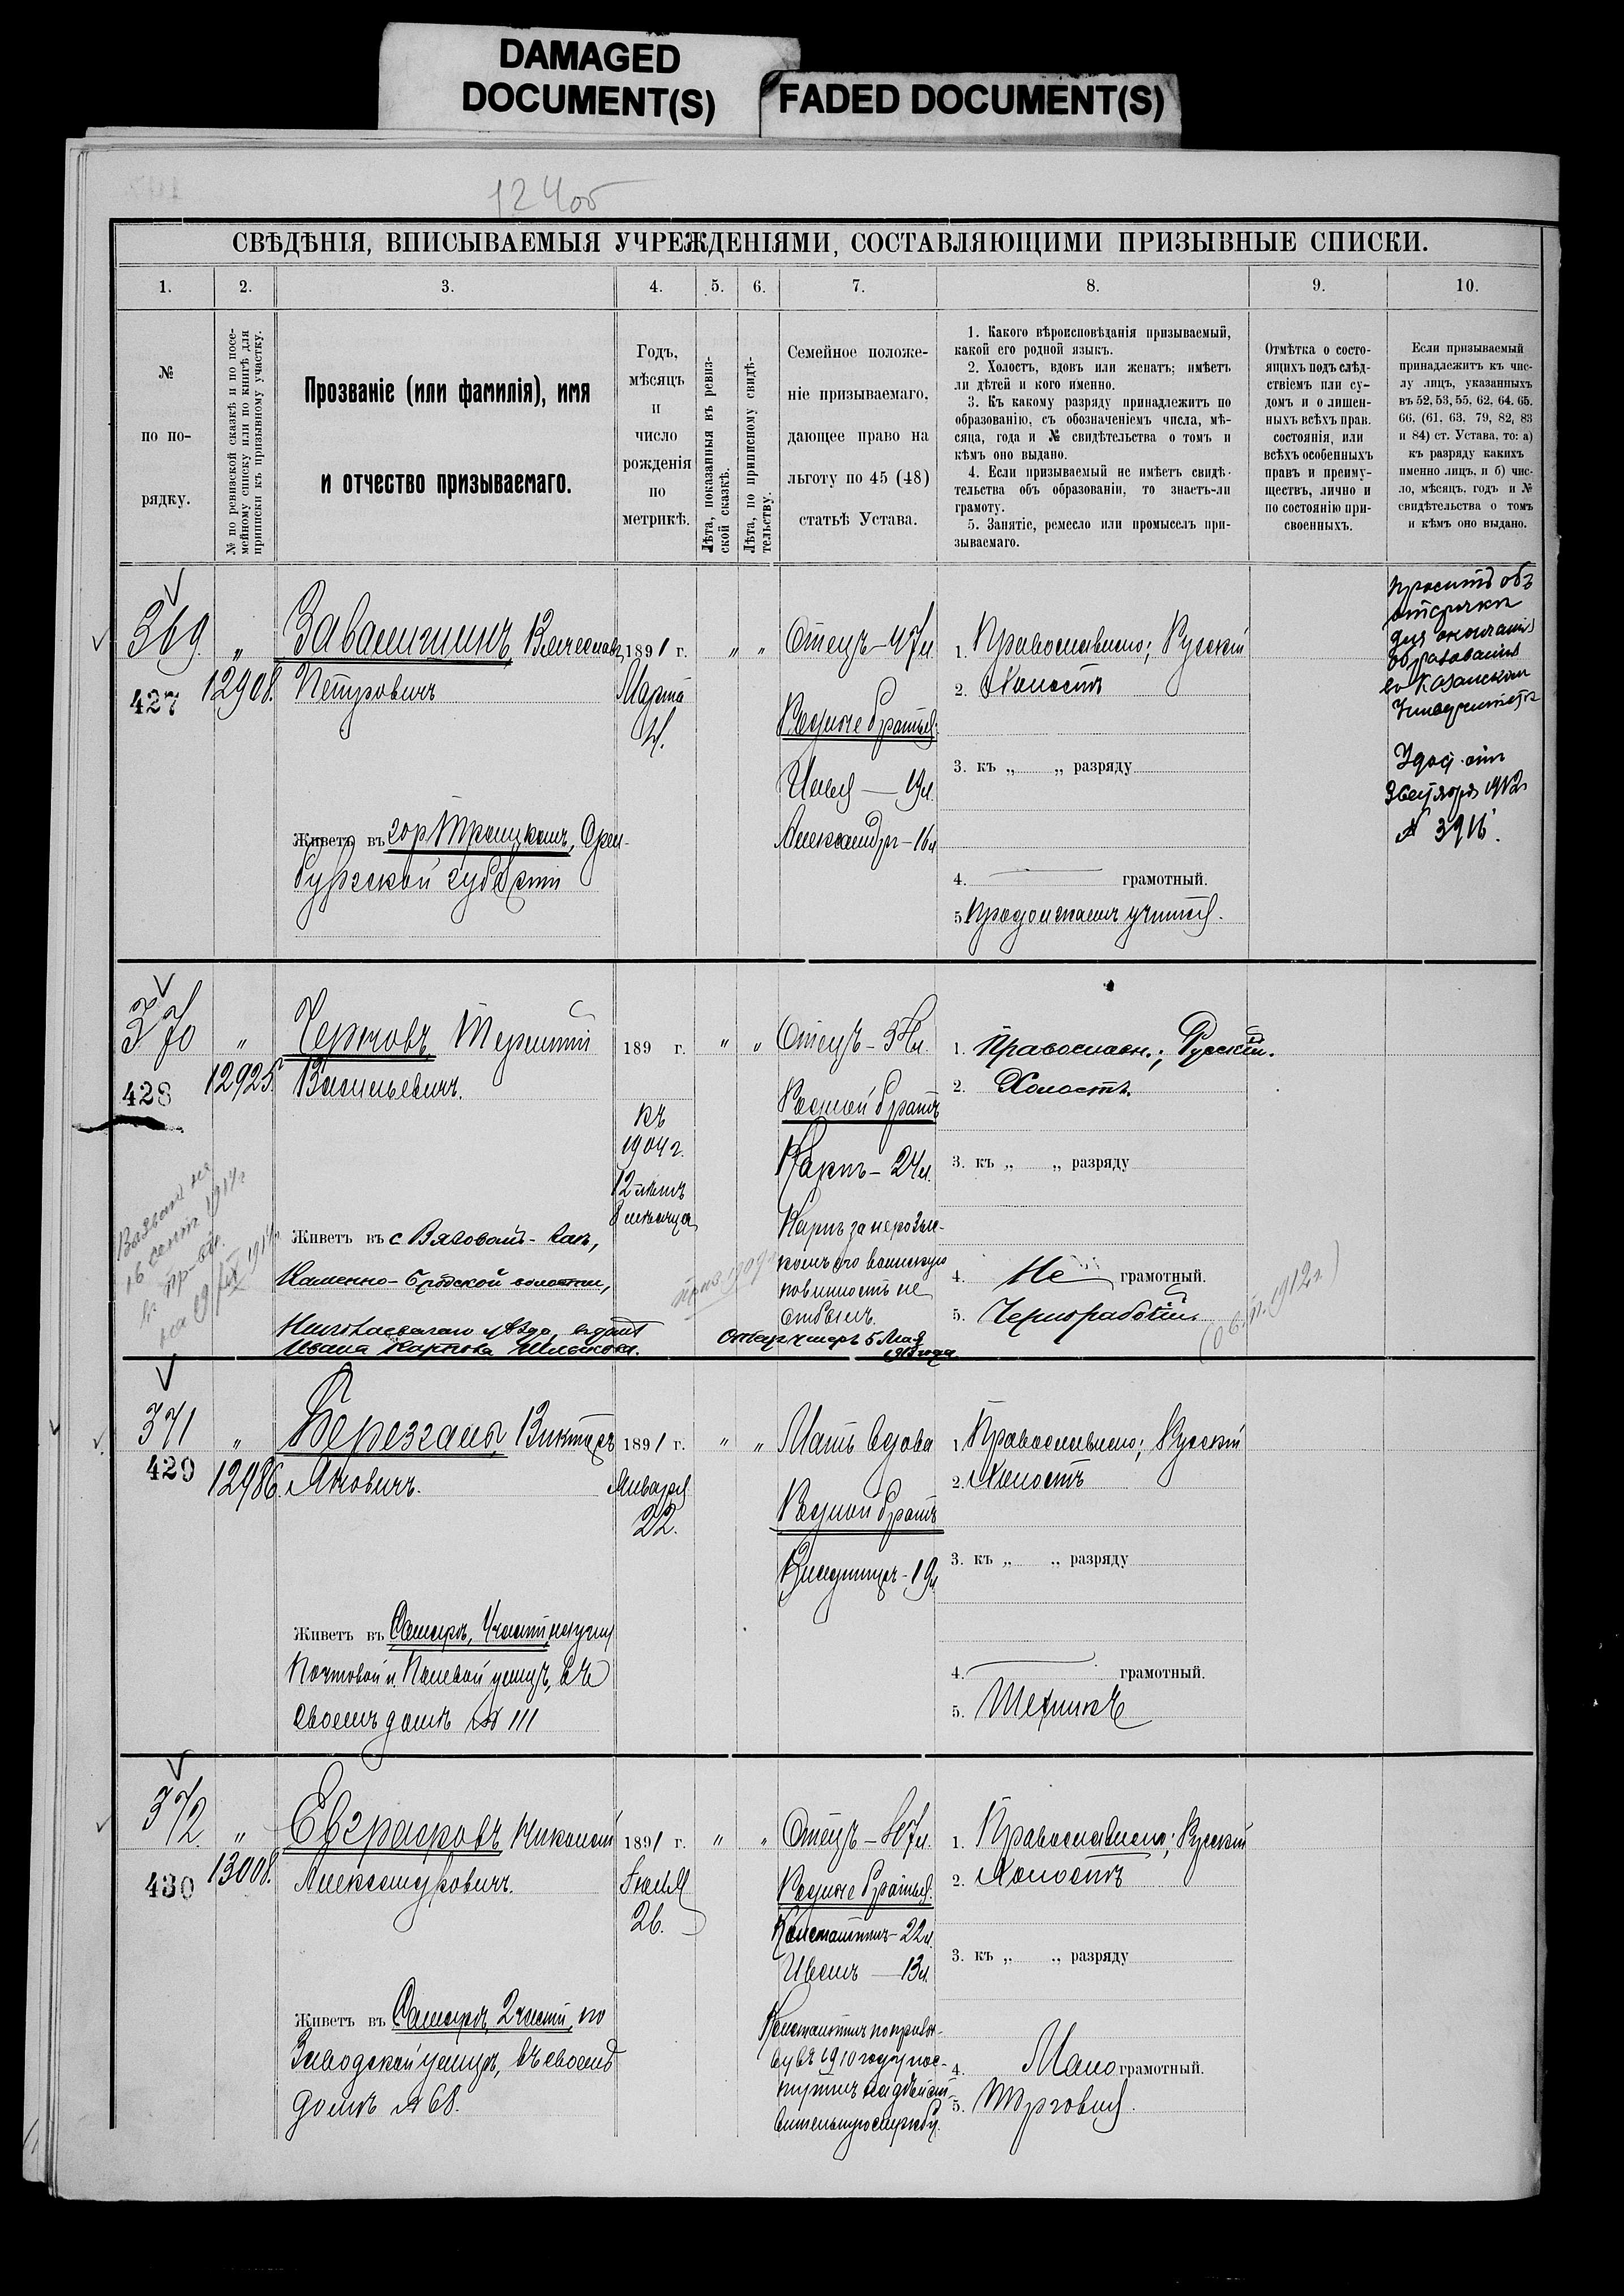 DAMAGED
DOCUMENT(S)
FADED DOCUMENT(S)
124об
СВѢДѢНІЯ, ВПИСЫВАЕМЫЯ УЧРЕЖДЕНІЯМИ, СОСТАВЛЯЮЩИМИ ПРИЗЫВНЫЕ СПИСКИ.
1. 2. 3. 4. 5. 6. 7. 8. 9. 10.
№
по по-
рядку.
№ по ревизской сказкѣ и по посе-
мейному списку или по книгѣ для
приписки къ призывному участку.
Прозваніе (или фамилія), имя
и отчество призываемаго.
Годъ,
мѣсяцъ
и
число
рожденія
по
метрикѣ.
Лѣта, показанныя въ ревиз-
ской сказкѣ.
Лѣта, по приписному свидѣ-
тельству.
Семейное положе-
ніе призываемаго,
дающее право на
льготу по 45 (48)
статьѣ Устава.
1. Какого вѣроисповѣданія призываемый,
какой его родной языкъ.
2. Холостъ, вдовъ или женатъ; имѣетъ
ли дѣтей и кого именно.
3. Къ какому разряду принадлежитъ по
образованію, съ обозначеніемъ числа, мѣ-
сяца, года и № свидѣтельства о томъ и
кѣмъ оно выдано.
4. Если призываемый не имѣетъ свидѣ-
тельства объ образованіи, то знаетъ-ли
грамоту.
5. Занятіе, ремесло или промыселъ при-
зываемаго.
Отмѣтка о состо-
ящихъ подъ слѣд-
ствіемъ или су-
домъ и о лишен-
ныхъ всѣхъ прав.
состоянія, или
всѣхъ особенныхъ
правъ и преиму-
ществъ, лично и
по состоянію при-
своенныхъ.
Если призываемый
принадлежитъ къ чис-
лу лицъ, указанныхъ
въ 52, 53, 55, 62, 64, 65,
66, (61, 63, 79, 82, 83
и 84) ст. Устава, то: а)
къ разряду какихъ
именно лицъ, и б) чис-
ло, мѣсяцъ, годъ и №
свидѣтельства о томъ
и кѣмъ оно выдано.
369. „ Завалишинъ Вячеславъ 1891 г. „ „ Отецъ – 47 л. 1. Православно; Русскій
427 12908. Петровичъ Марта 2. Холостъ
4.
Родные братья:
Илья — 19 л.
Александръ – 16 л
3. къ „ „ разряду
Живетъ въ гор Троицкомъ, Орен-
бургской губерніи
4. — грамотный.
5. Продолжаетъ учиться.
проситъ объ
отсрочкѣ
для окончанія
образованія
въ Казанскомъ
Университетѣ
Удос. отъ
1912
№ 3916.
370 „ Чертовъ Терентій 189 г. „ „ Отецъ – л. 1. Православн.; Русскій.
428 12925. Васильевичъ. 2. Холостъ.
къ
1904 г.
12 лѣтъ
8 мѣсяцев
Родной братъ
Карпъ – 24 л.
Карпъ за нерозы-
комъ его воинскую
повинность не
отбылъ.
Отецъ умеръ 5 Мая
3. къ „ „ разряду
Живетъ въ с Вязовомъ-
Каменно-Бродской волости,
Николаевскаго уѣзда,
Ивана Карпова
4. Не грамотный.
5. Чернорабочій.
16 сент. 1914 г
371 „ Березганъ Викторъ 1891 г. „ „ Мать вдова 1. Православно; Русскій
429 12986. Яковичъ. Января 2. Холостъ
22.
Родной братъ
Владимиръ – 19 л
3. къ „ „ разряду
Живетъ въ Самарѣ,
Почтовой и Полевой улицъ, въ
своемъ домѣ № 111
4. — грамотный.
5. Техникъ
372. „ Евграфовъ Николай 1891 г. „ „ Отецъ – 47 л. 1. Православно; Русскій
430 13008. Александровичъ. Іюля 2. Холостъ
26.
Родные братья:
Константинъ – 22 л.
Иванъ — 13 л.
3. къ „ „ разряду
Живетъ въ Самарѣ, 2 части, по
Заводской улицѣ, въ своемъ
домѣ № 68.
Константинъ по призы-
ву въ 1910 году пос-
тупилъ на дѣйст-
вительную службу.
4. Мало грамотный.
5. Торговля.